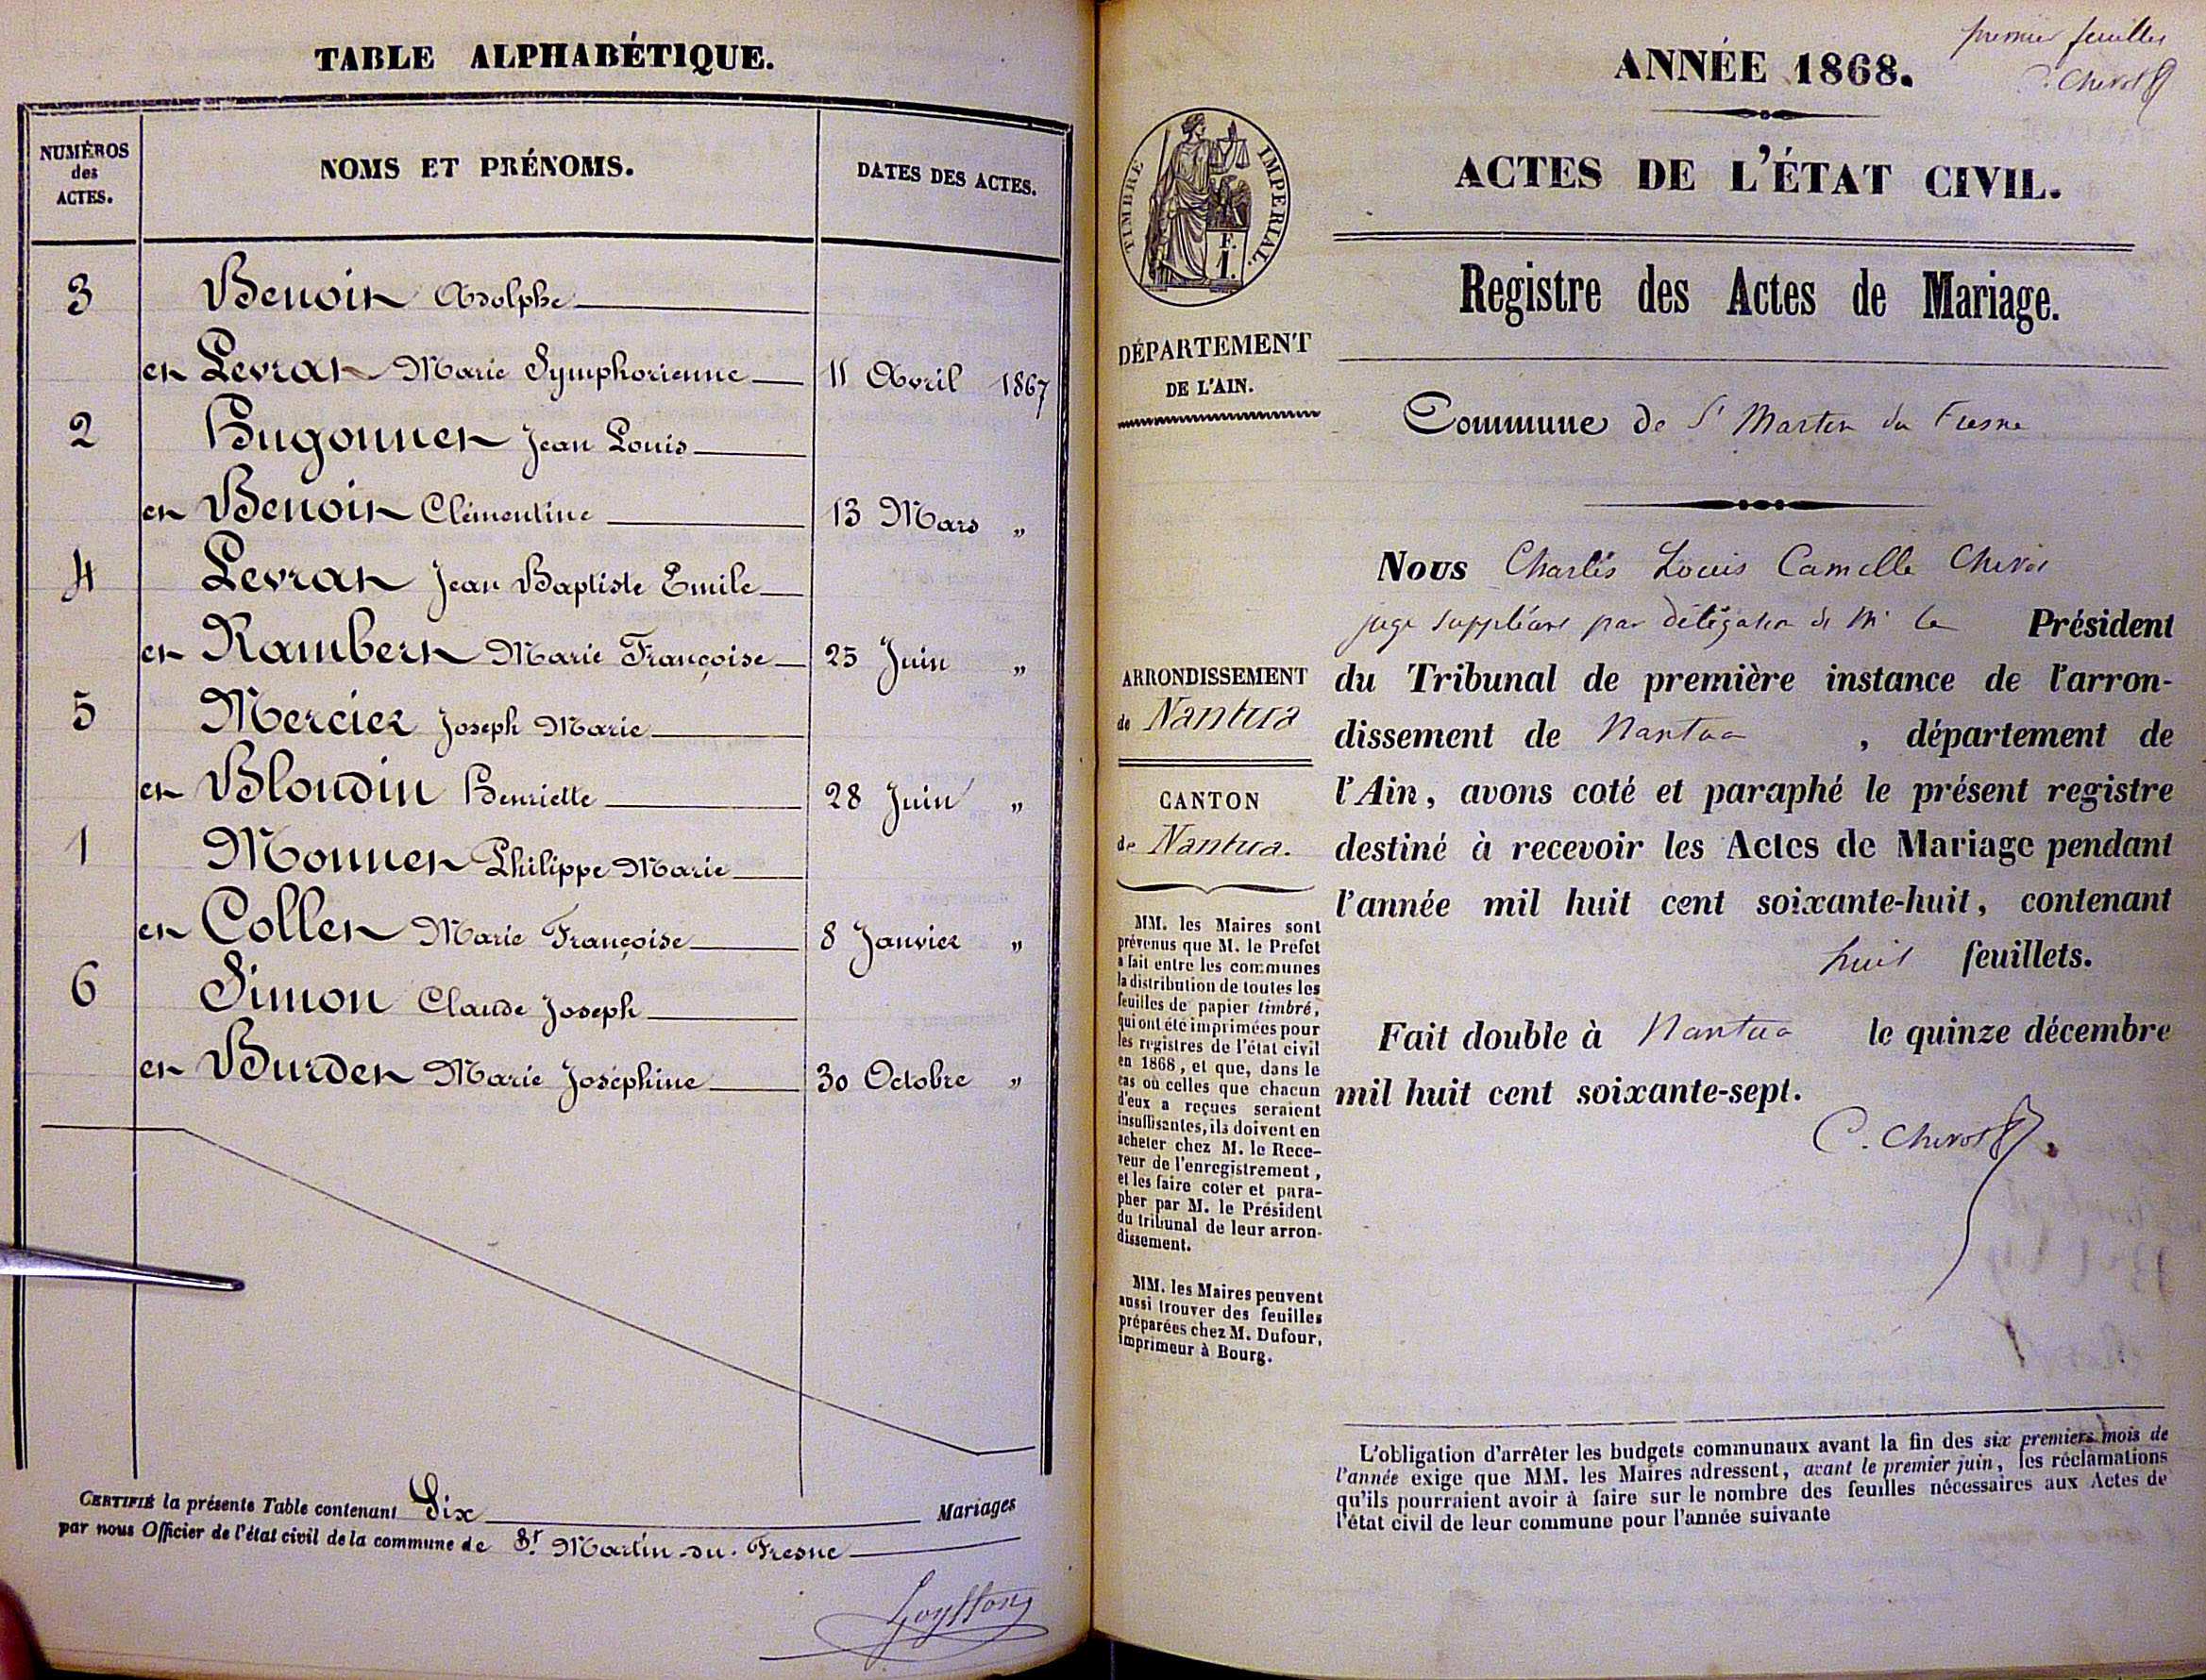 TABLE ALPHABÉTIQUE.
NUMÉROS
des
ACTES.
NOMS ET PRÉNOMS.
DATES DES ACTES.
3 Benoit Adolphe
et Levrat Marie Symphorienne 11 Avril 1867
2 Hugonnet Jean Louis
et Benoit Clémentine 13 Mars "
4 Levrat Jean Baptiste Emile
et Rambert Marie Françoise 25 Juin "
5 Mercier Joseph Marie
et Blondin Henriette 28 Juin "
1 Monnet Philippe Marie
et Collet Marie Françoise 8 Janvier "
6 Simon Claude Joseph
et Burdet Marie Joséphine 30 Octobre "
CERTIFIÉ la présente Table contenant Six Mariages
par nous Officier de l'état civil de la commune de St Martin-du-Fresne
premier feuillet
C. Chevot
ANNÉE 1868.
TIMBRE IMPERIAL.
ACTES DE L'ÉTAT CIVIL.
Registre des Actes de Mariage.
DÉPARTEMENT
DE L'AIN.
Commune de St Martin du Fresne
Nous Charles Louis Camille Chevot
juge suppléant par délégation de Mr le Président
du Tribunal de première instance de l'arron-
dissement de Nantua , département de
l'Ain, avons coté et paraphé le présent registre
destiné à recevoir les Actes de Mariage pendant
l'année mil huit cent soixante-huit, contenant
huit feuillets.
Fait double à Nantua le quinze décembre
mil huit cent soixante-sept.
C. Chevot
ARRONDISSEMENT
de Nantua
CANTON
de Nantua.
MM. les Maires sont
prévenus que M. le Préfet
a fait entre les communes
la distribution de toutes les
feuilles de papier timbré,
qui ont été imprimées pour
les registres de l'état civil
en 1868, et que, dans le
cas où celles que chacun
d'eux a reçues seraient
insuffisantes, ils doivent en
acheter chez M. le Rece-
veur de l'enregistrement,
et les faire coter et para-
pher par M. le Président
du tribunal de leur arron-
dissement.
MM. les Maires peuvent
aussi trouver des feuilles
préparées chez M. Dufour,
imprimeur à Bourg.
L'obligation d'arrêter les budgets communaux avant la fin des six premiers mois de
l'année exige que MM. les Maires adressent, avant le premier juin, les réclamations
qu'ils pourraient avoir à faire sur le nombre des feuilles nécessaires aux Actes de
l'état civil de leur commune pour l'année suivante